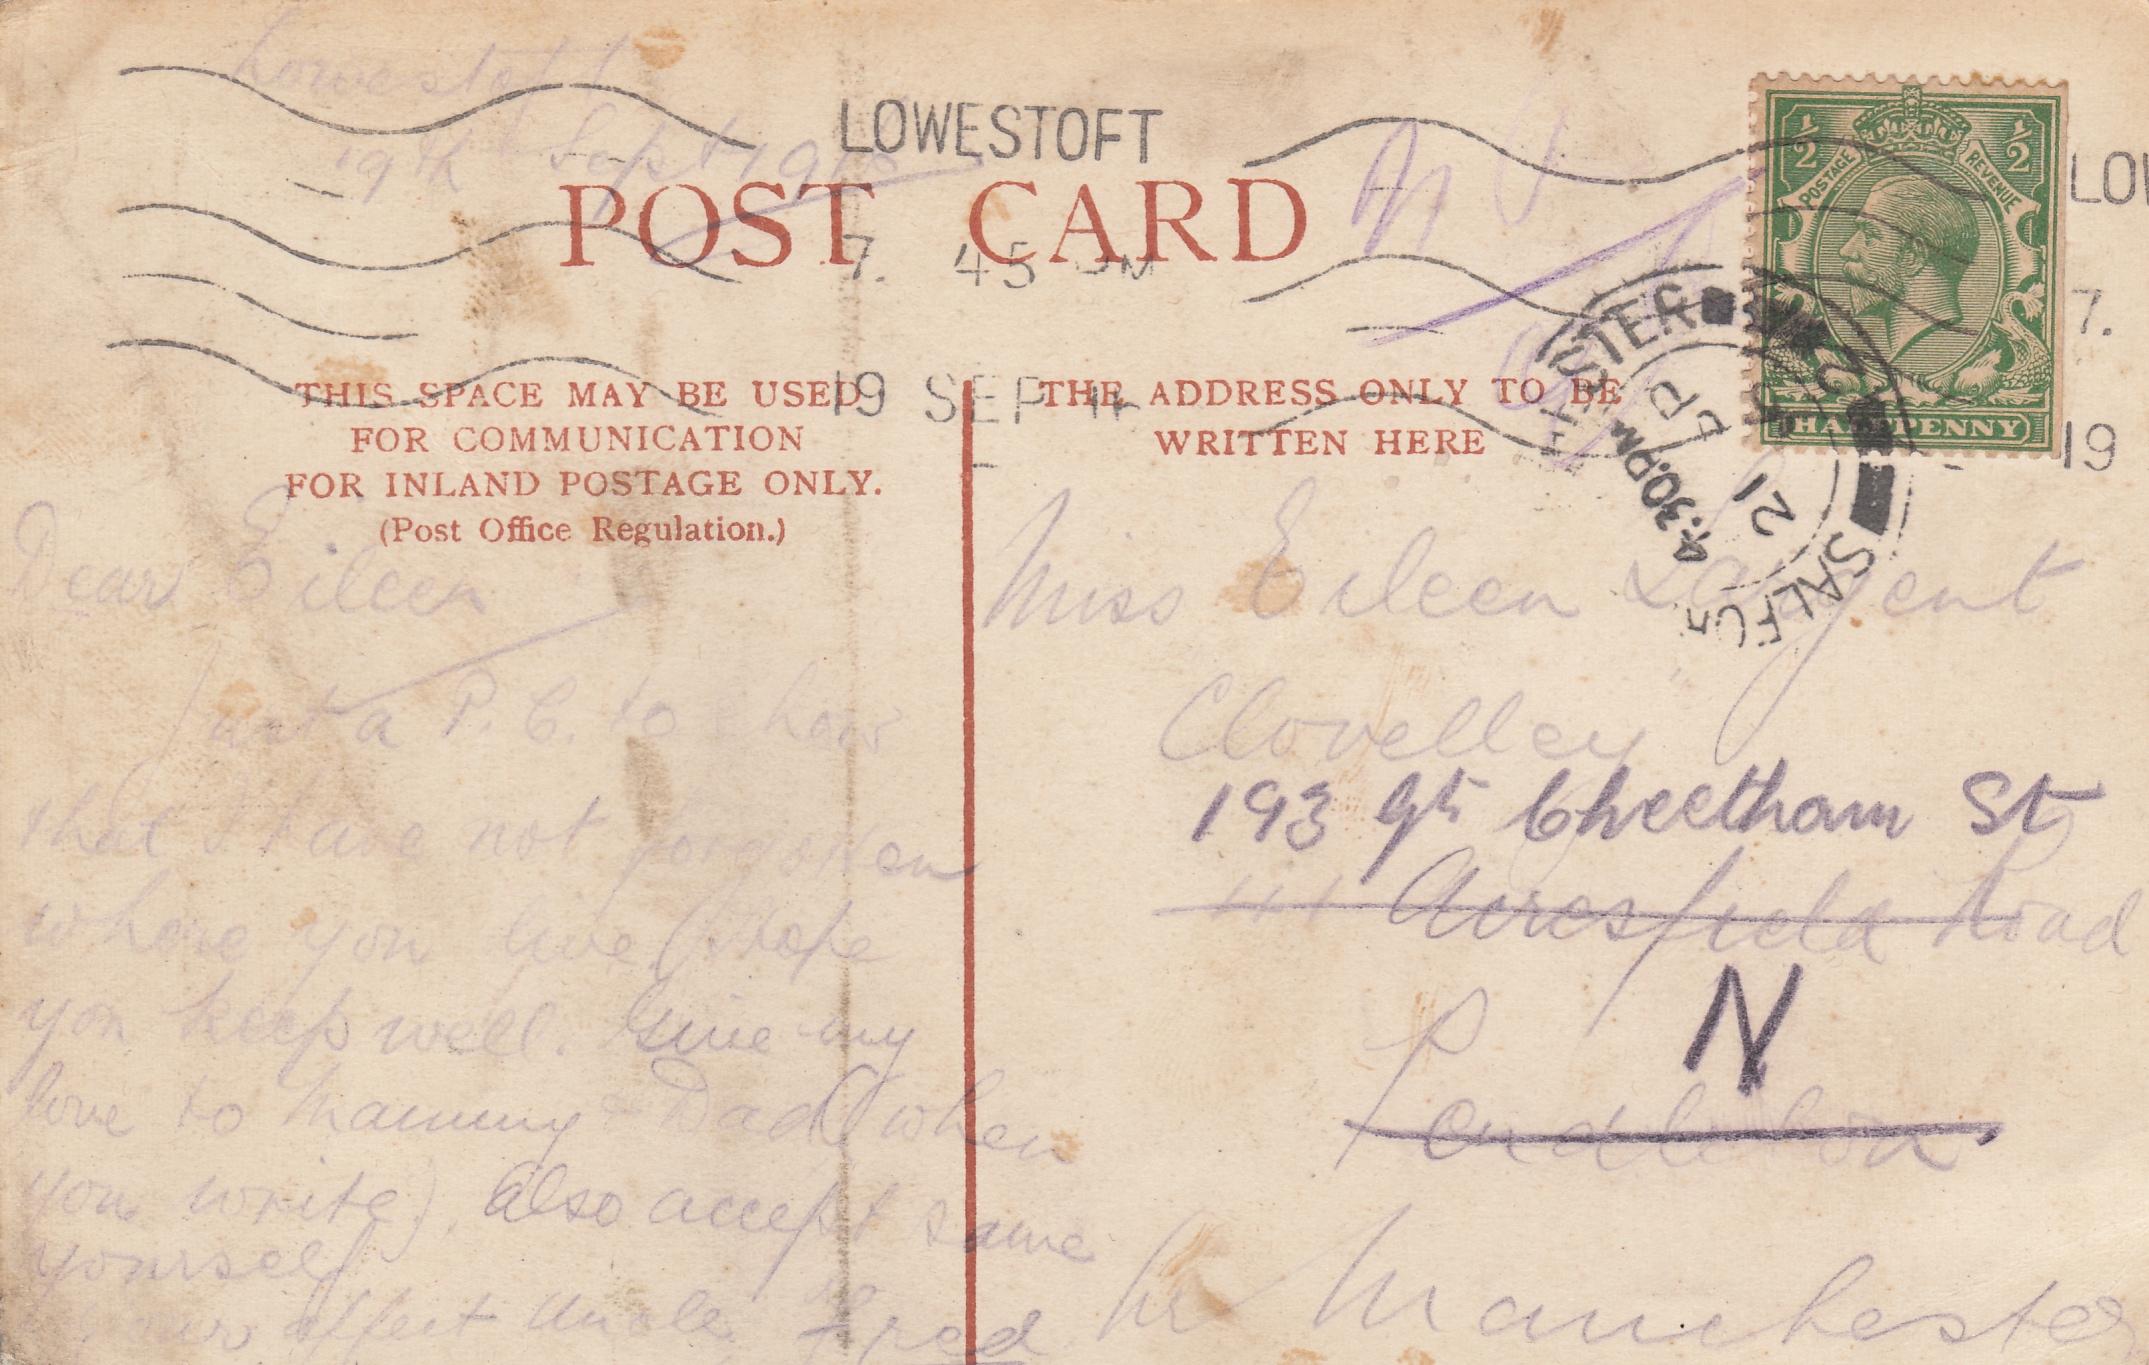 Lowestoft
19th Sept
LOWESTOFT
7. 45 PM
19 SEP
POST CARD
THIS SPACE MAY BE USED
FOR COMMUNICATION
FOR INLAND POSTAGE ONLY.
(Post Office Regulation.)
THE ADDRESS ONLY TO BE
WRITTEN HERE
1/2 1/2
POSTAGE REVENUE
HALFPENNY
LOW
7.
19
4.30PM
21
Dear Eileen
Just a P.C. to show
that I have not forgotten
where you live. Hope
you keep well. Give my
love to Mammy & Dad (when
you write). Also accept same
yourself
Your affect Uncle Fred
Miss Eileen Sargent
Clovelley
193 Gt Cheetham St
Acresfield Road
N
Pendleton
Nr Manchester